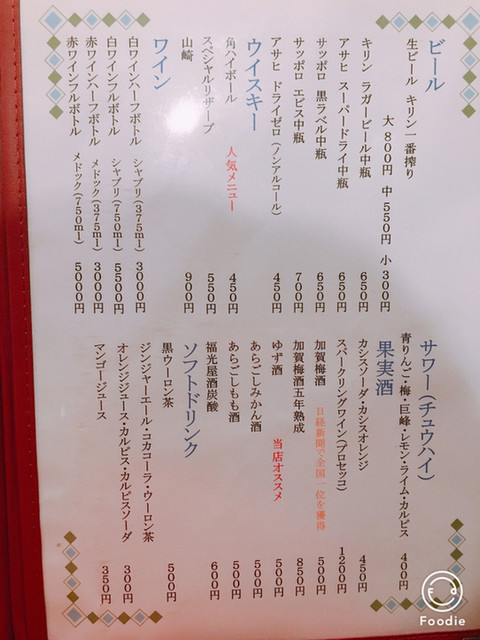 ビール
生ビール キリン一番搾り
大 800円 中 550円 小 300円
キリン ラガービール中瓶 650円
アサヒ スーパードライ中瓶 650円
サッポロ 黒ラベル中瓶 650円
サッポロ エビス中瓶 700円
アサヒ ドライゼロ(ノンアルコール) 450円
ウイスキー
角ハイボール 人気メニュー 450円
スペシャルリザーブ 550円
山崎 900円
ワイン
白ワインハーフボトル シャブリ(375ml) 3000円
白ワインフルボトル シャブリ(750ml) 5500円
赤ワインハーフボトル メドック(375ml) 3000円
赤ワインフルボトル メドック(750ml) 5000円
サワー(チュウハイ)
青りんご・梅・巨峰・レモン・ライム・カルピス 400円
果実酒
カシスソーダ・カシスオレンジ 450円
スパークリングワイン(プロセッコ) 1200円
加賀梅酒 日経新聞で全国一位を獲得 500円
加賀梅酒五年熟成 850円
ゆず酒 当店オススメ 500円
あらごしみかん酒 500円
あらごしもも酒 500円
福光屋酒炭酸 600円
ソフトドリンク
黒ウーロン茶 500円
ジンジャーエール・コカコーラ・ウーロン茶
オレンジジュース・カルピス・カルピスソーダ 300円
マンゴージュース 350円
Foodie